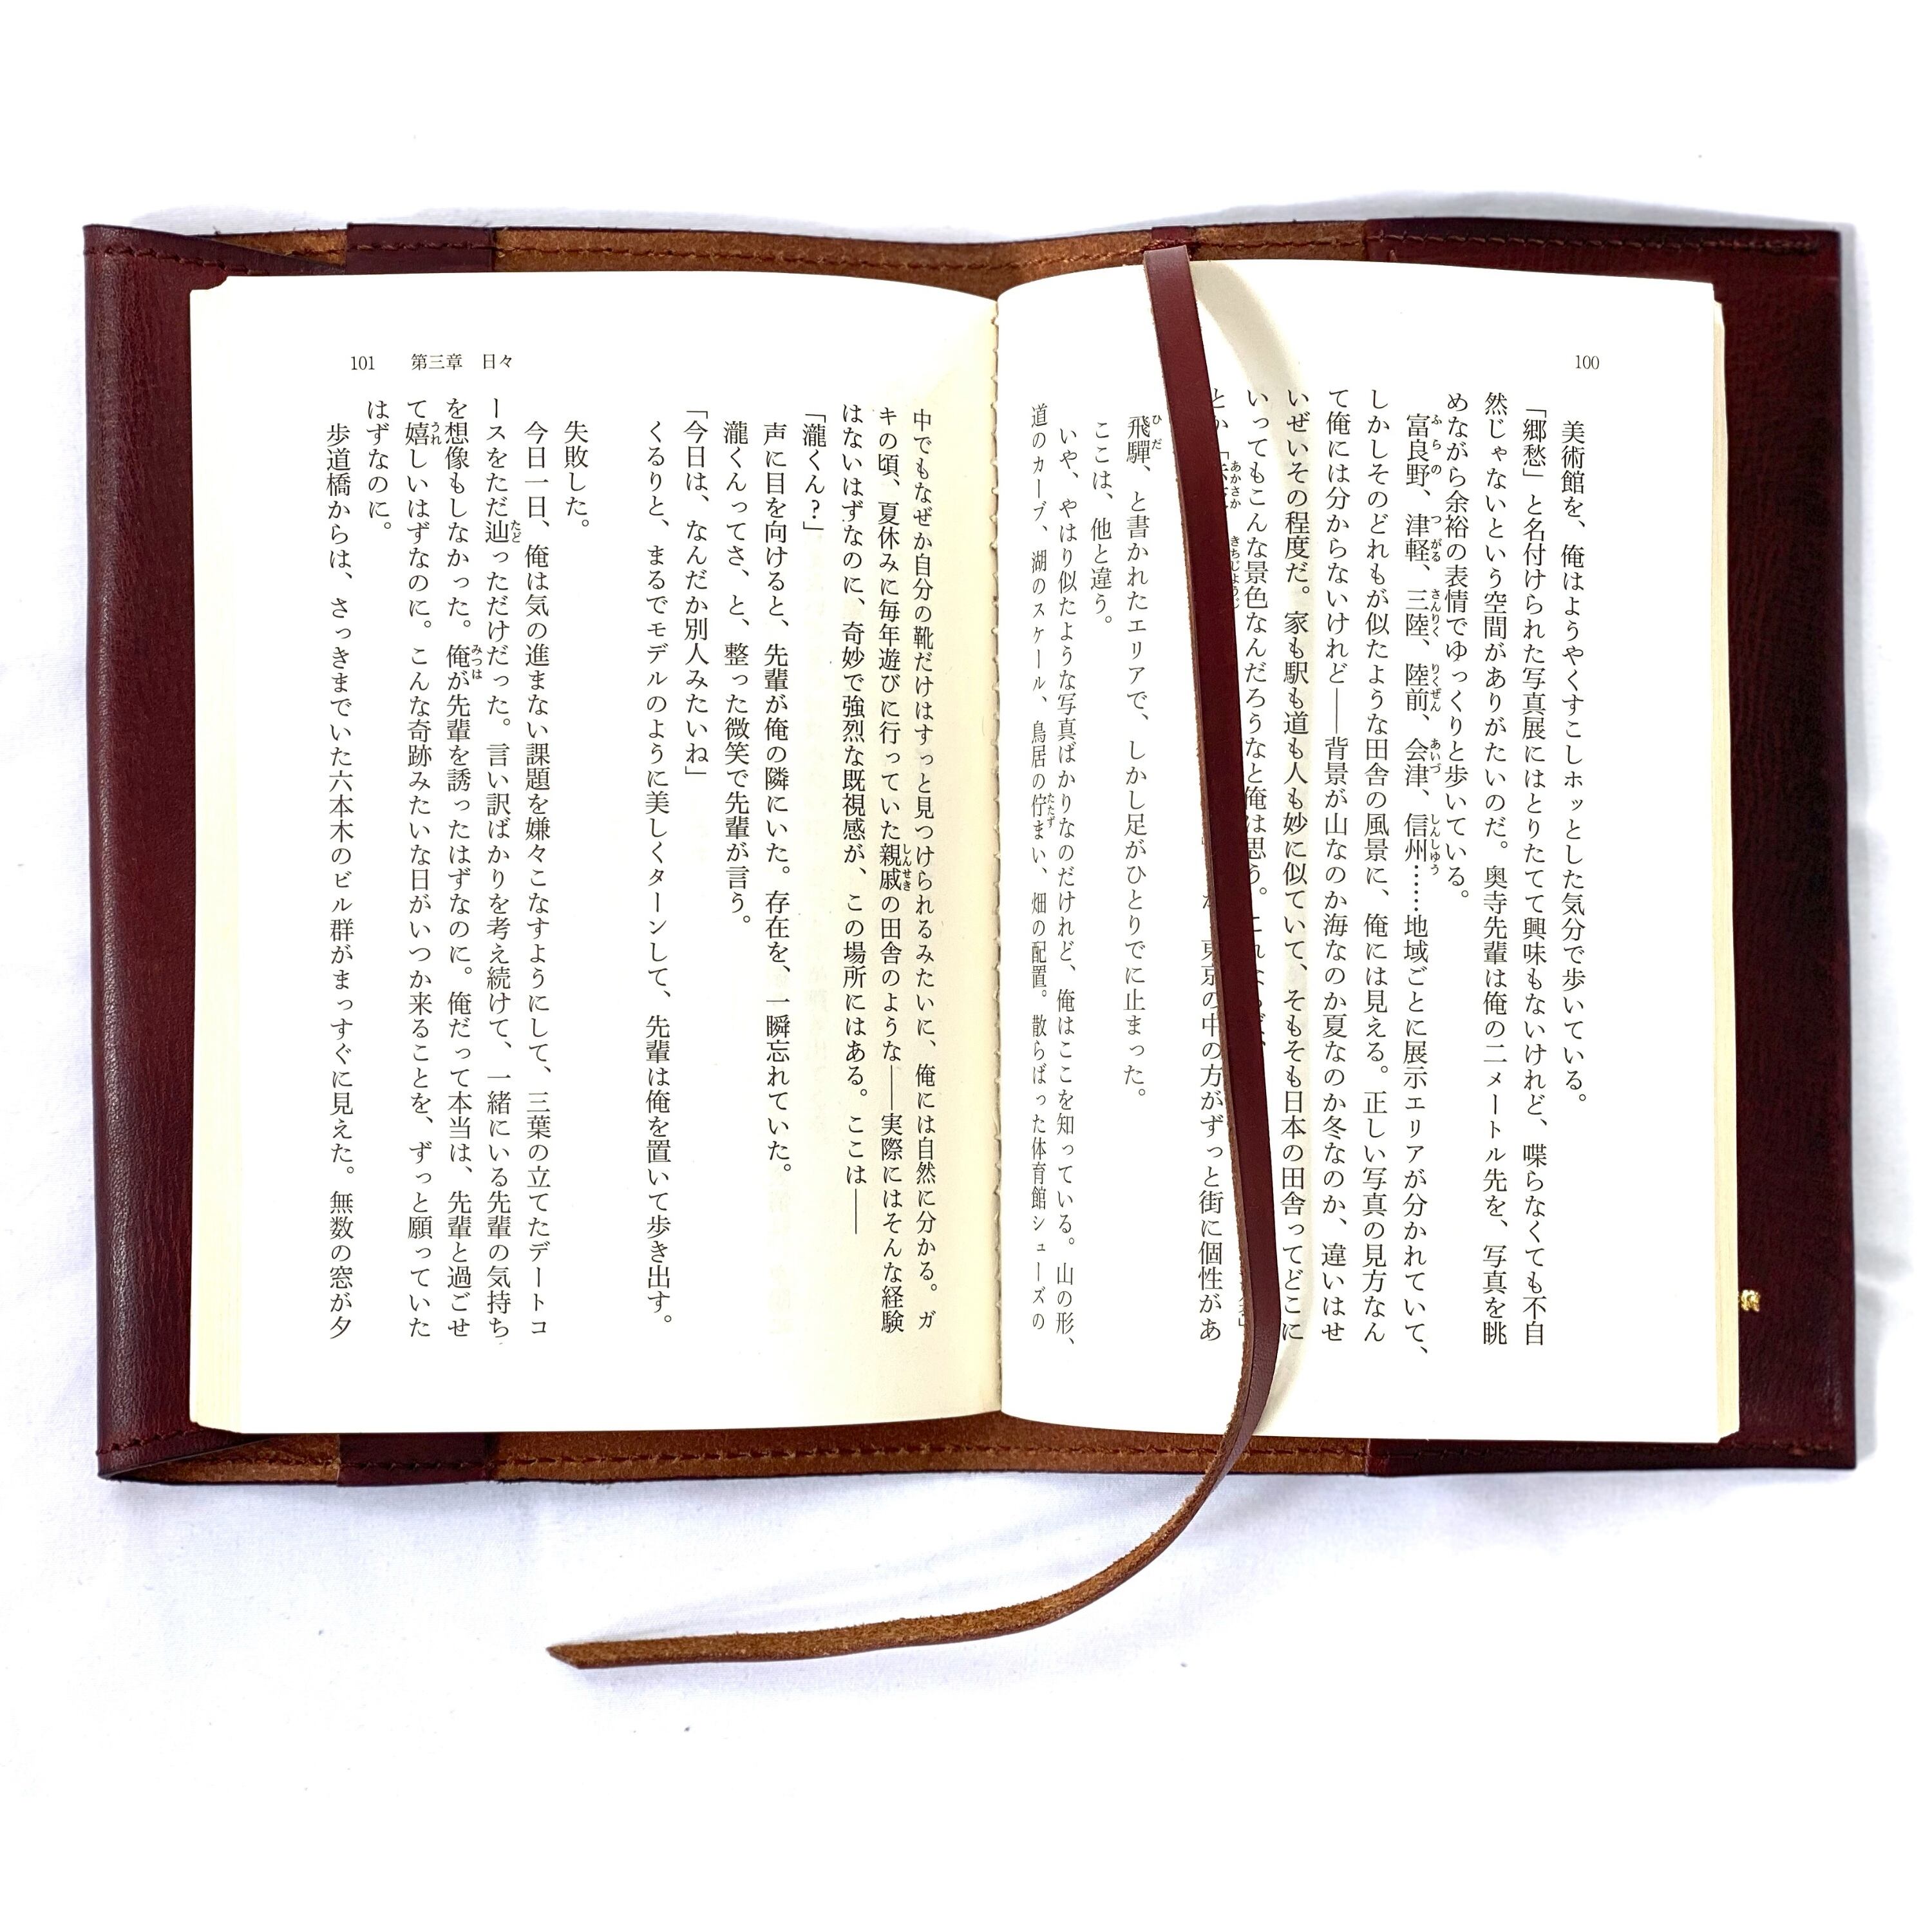 100
美術館を、俺はようやくすこしホッとした気分で歩いている。
「郷愁」と名付けられた写真展にはとりたてて興味もないけれど、喋らなくても不自
然じゃないという空間がありがたいのだ。奥寺先輩は俺の二メートル先を、写真を眺
めながら余裕の表情でゆっくりと歩いている。
富良野、津軽、三陸、陸前、会津、信州……地域ごとに展示エリアが分かれていて、
しかしそのどれもが似たような田舎の風景に、俺には見える。正しい写真の見方なん
て俺には分からないけれど――背景が山なのか海なのか夏なのか冬なのか、違いはせ
いぜいその程度だ。家も駅も道も人も妙に似ていて、そもそも日本の田舎ってどこに
いってもこんな景色なんだろうなと俺は思う。
とか「 東京の中の方がずっと街に個性があ
飛騨、と書かれたエリアで、しかし足がひとりでに止まった。
ここは、他と違う。
いや、やはり似たような写真ばかりなのだけれど、俺はここを知っている。山の形、
道のカーブ、湖のスケール、鳥居の佇まい、畑の配置。散らばった体育館シューズの
101 第三章 日々
中でもなぜか自分の靴だけはすっと見つけられるみたいに、俺には自然に分かる。ガ
キの頃、夏休みに毎年遊びに行っていた親戚の田舎のような――実際にはそんな経験
はないはずなのに、奇妙で強烈な既視感が、この場所にはある。ここは――
「瀧くん？」
声に目を向けると、先輩が俺の隣にいた。存在を、一瞬忘れていた。
瀧くんってさ、と、整った微笑で先輩が言う。
「今日は、なんだか別人みたいね」
くるりと、まるでモデルのように美しくターンして、先輩は俺を置いて歩き出す。
失敗した。
今日一日、俺は気の進まない課題を嫌々こなすようにして、三葉の立てたデートコ
ースをただ辿っただけだった。言い訳ばかりを考え続けて、一緒にいる先輩の気持ち
を想像もしなかった。俺が先輩を誘ったはずなのに。俺だって本当は、先輩と過ごせ
て嬉しいはずなのに。こんな奇跡みたいな日がいつか来ることを、ずっと願っていた
はずなのに。
歩道橋からは、さっきまでいた六本木のビル群がまっすぐに見えた。無数の窓が夕